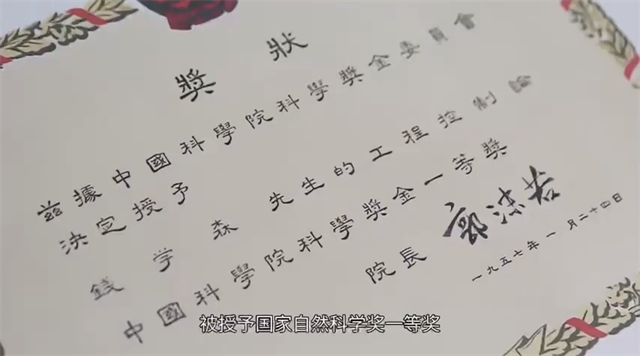 獎狀
茲據中國科學院科學獎金委員會
決定授予
錢学森 先生的工程控制論
中國科学院科學獎金一等獎
院長 郭沫若
一九五七年 一月二十四日
被授予国家自然科学奖一等奖